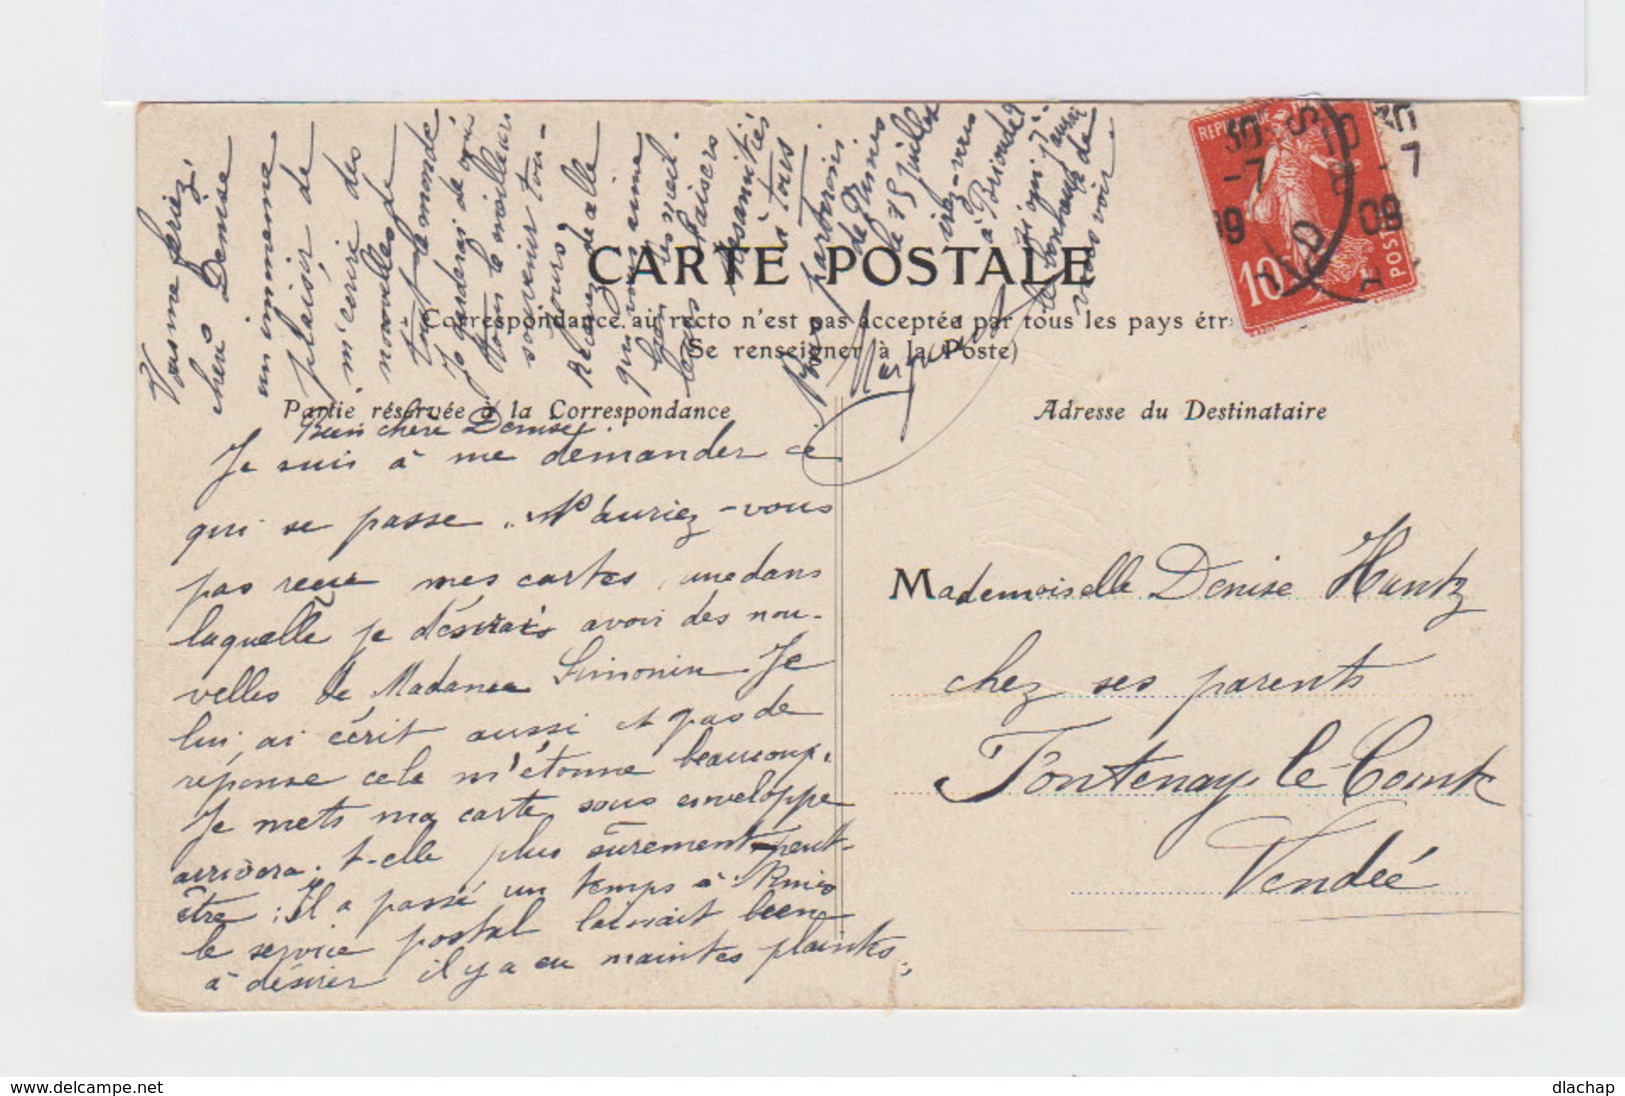 CARTE POSTALE
Correspondance au recto n'est pas acceptée par tous les pays étr
(Se renseigner à la Poste)
Partie réservée à la Correspondance
Adresse du Destinataire
Bien chère Denise,
Je suis à me demander ce
qui se passe. N'auriez-vous
pas reçu mes cartes, une dans
laquelle je désirais avoir des nou-
velles de Madame Simonin. Je
lui ai écrit aussi et pas de
réponse cela m'étonne beaucoup.
Je mets ma carte sous enveloppe
arrivera-t-elle plus sûrement peut-
être : Il a passé un temps à Nîmes
le service postal laissait bien
à désirer il y a eu maintes plaintes.
Vous me feriez
chère Denise
un immense
plaisir de
m'écrire des
nouvelles de
tout le monde
Je garderai de vous
tous le meilleur
souvenir tou-
jours.
Recevez de celle
qui vous aime
bien les meil.
leurs baisers
amitiés
à tous
Nous partirons
de Nîmes
le 15 juillet
irez-vous
à Brioude ?
si oui j'aurai
le bonheur de
vous voir.
Marguerite
Mademoiselle Denise Huntz
chez ses parents
Fontenay-le-Comte
Vendée
REPUBLIQUE
10
POSTES
30
-7
09
www.delcampe.net
dlachap